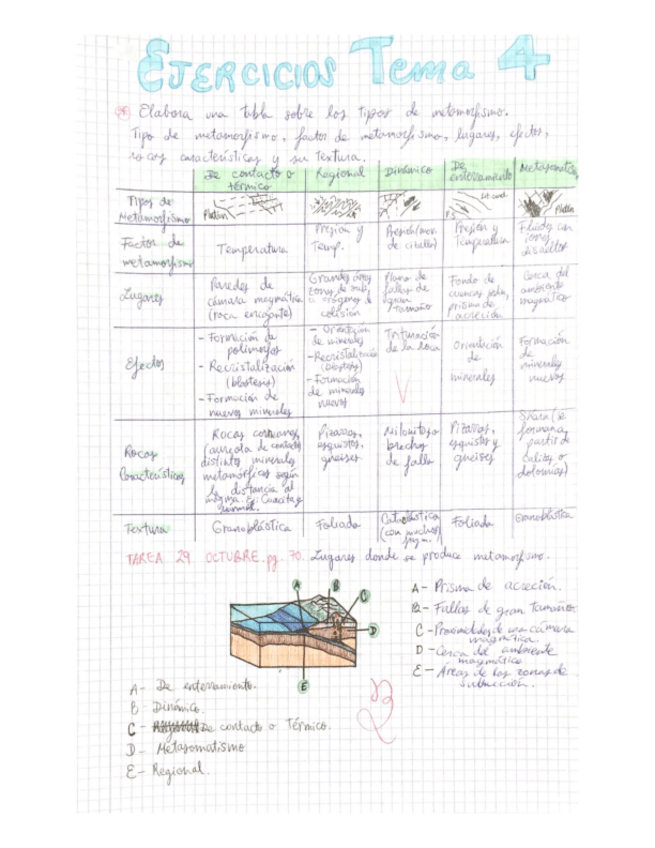 EJERCICIOS Tema 4
* Elabora una tabla sobre los tipos de metamorfismo.
Tipo de metamorfismo, factor de metamorfismo, lugares, efectos,
rocas características y su textura.
De contacto o térmico
Regional
Dinámico
De enterramiento
Tipos de Metamorfismo
Plutón
Plutón
Factor de metamorfismo
Temperatura
Presión y Temp.
Presión y Temperatura
Fluidos con iones disueltos
Lugares
Paredes de cámara magmática (roca encajante)
Plano de fallas de gran tamaño
Fondo de cuencas prisma de acreción
Cerca del ambiente magmático
Efectos
- Formación de polimorfos
- Recristalización (blastesis)
- Formación de nuevos minerales
- Orientación de minerales
- Recristalización (blastesis)
- Formación de minerales nuevos
Trituración de la roca
V
Orientación de minerales
Formación de minerales nuevos
Rocas Características
Rocas corneanas, (aureola de contacto) distintos minerales metamórficos según la distancia al magma.
Pizarras, esquistos, gneises
Milonitas o brechas de falla
Pizarras, esquistos y gneises
Textura
Granoblástica
Foliada
Cataclástica
Foliada
Granoblástica
TAREA 29 OCTUBRE. pg. 70. Lugares donde se produce metamorfismo.
A
B
C
D
E
A- Prisma de acreción.
B- Fallas de gran tamaño
C- Proximidades de una cámara magmática.
D- Cerca del ambiente magmático
E- Áreas de las zonas de subducción.
A- De enterramiento.
B- Dinámico.
C- De contacto o térmico.
D- Metasomatismo
E- Regional.